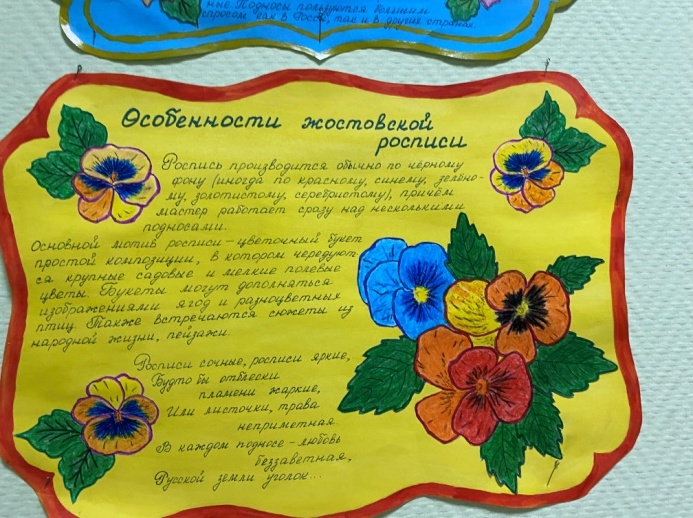 мне. Подносы пользуются большим
спросом как в России, так и в других странах.
Особенности жостовской
росписи
Роспись производится обычно по чёрному
фону (иногда по красному, синему, зелёно-
му, золотистому, серебристому), причём
мастер работает сразу над несколькими
подносами.
Основной мотив росписи – цветочный букет
простой композиции, в котором чередуют-
ся крупные садовые и мелкие полевые
цветы. Букеты могут дополняться
изображениями ягод и разноцветных
птиц. Также встречаются сюжеты из
народной жизни, пейзажи.
Росписи сочные, росписи яркие,
Будто бы отблески
пламени жаркие,
Или листочки, трава
неприметная
В каждом подносе – любовь
беззаветная,
Русской земли уголок...